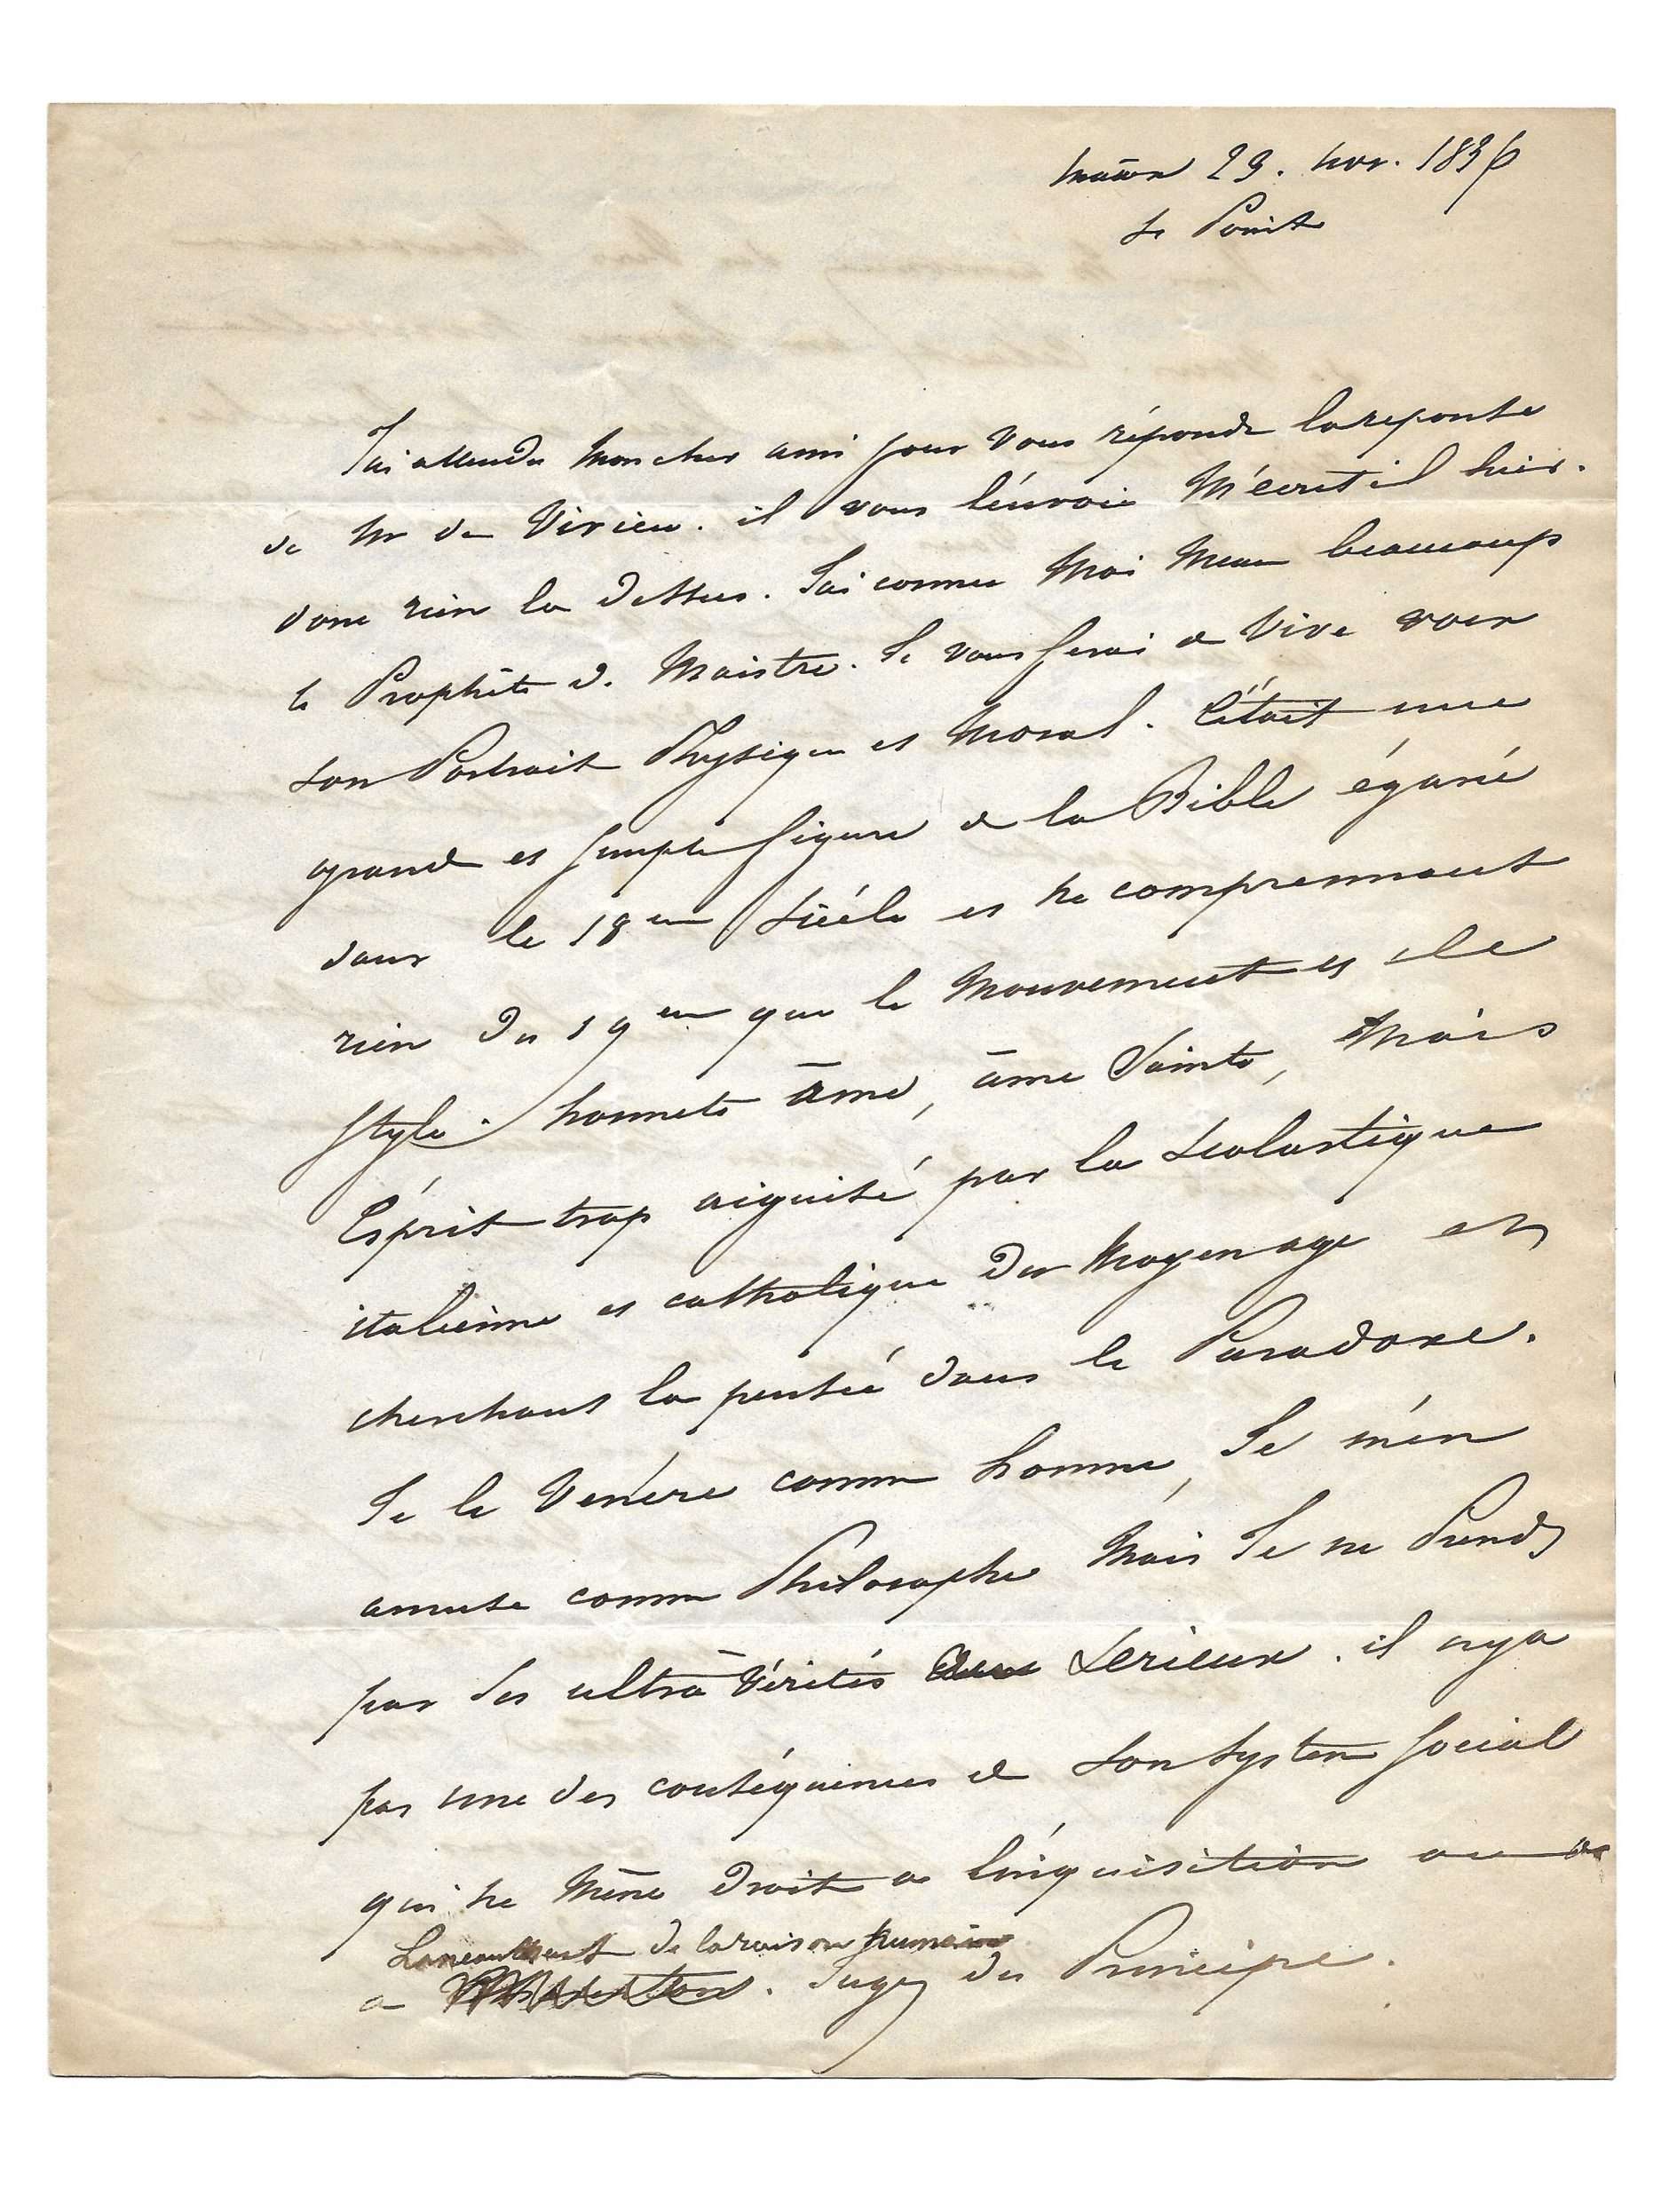 mâcon 23. nov. 1836
St Point
J'ai attendu mon cher ami pour vous répondre la reponse
de Mr de Virieu. il vous l'envoie M'écrit il hier.
donc rien la dessus. J'ai connu Moi Meme beaucoup
le Prophête de Maistre. Je vous ferai de Vive voix
son Portrait Physique et Moral. C'était une
grande et simple figure de la Bible égarée
dans le 18eme siècle et ne comprennant
rien du 19eme que le Mouvement et le
style. honnete âme, âme Sainte, Mais
Esprit trop aiguisé par la scolastique
italienne et catholique du Moyen age et
cherchant la pensée dans le Paradoxe.
Je le Venère comme homme, Je m'en
amuse comme Philosophe Mais Je ne Prends
pas ses ultra Vérités au Serieux. il n'y a
pas une des conséquences de son systeme social
qui ne Mène droit a l'inquisition ou
L'aneantissement de la raison humaine
a . Jugez du Principe.